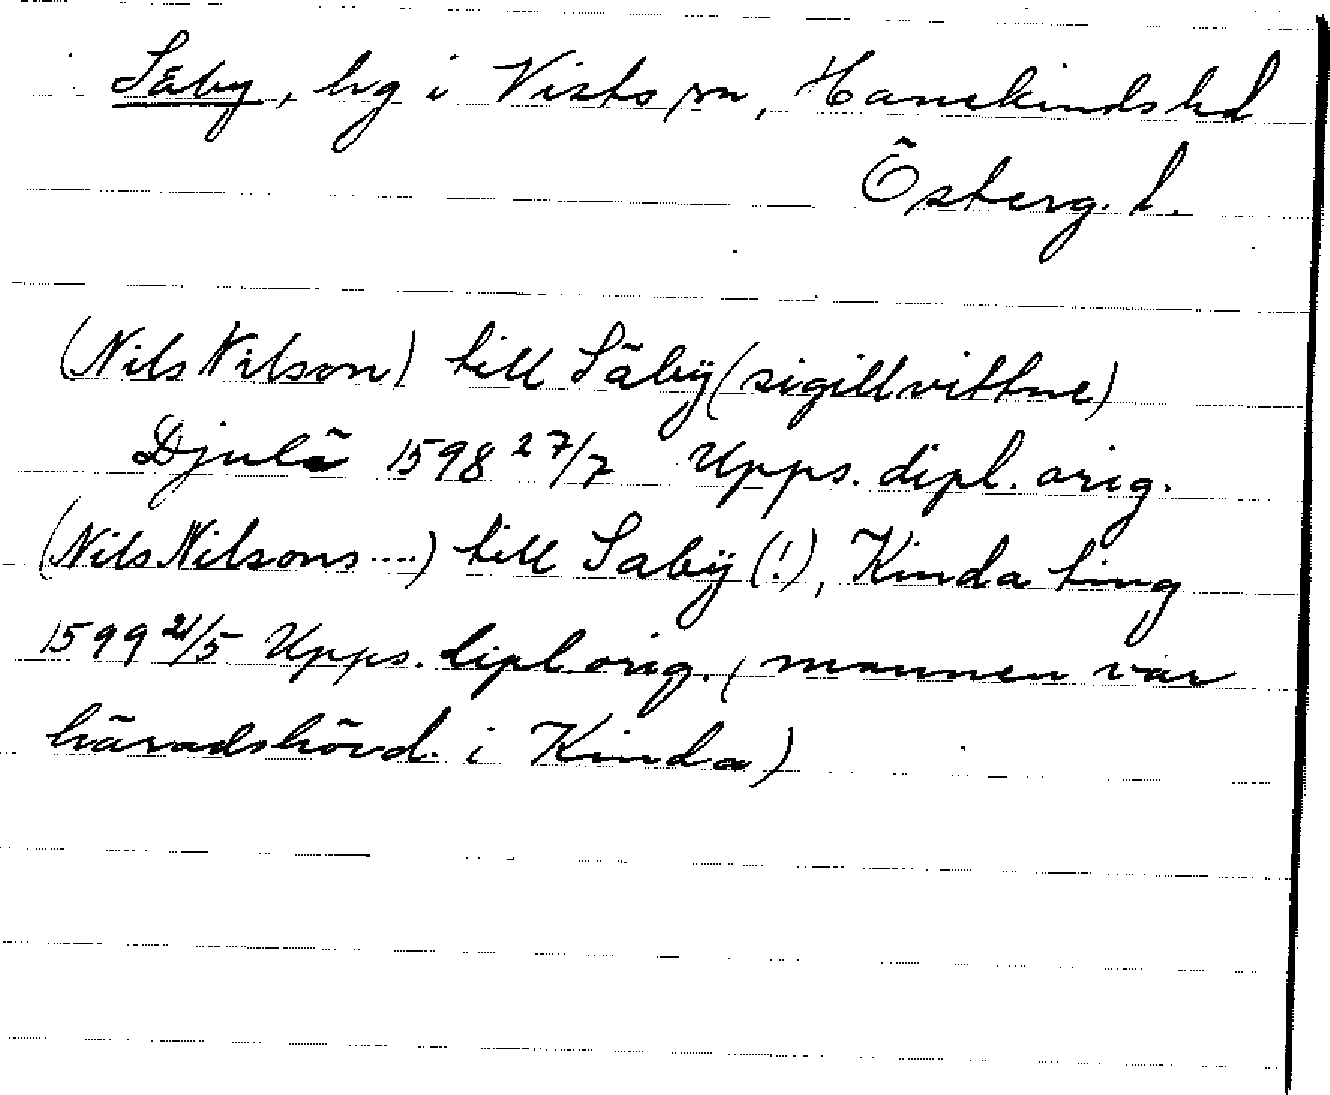 Säby, hg i Vists sn, Hanekinds hd
Österg. l.
(Nils Nilson) till Säbÿ (sigillvittne)
Djulö 1598 27/7 Upps. dipl. orig.
(Nils Nilsons ....) till Sabÿ (!), Kinda ting
1599 21/5 Upps. dipl orig. (mannen var
häradshövd. i Kinda)